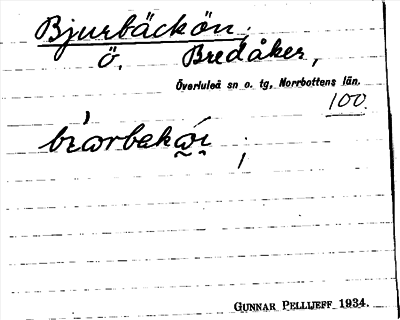 Bjurbäckön;
ö. Bredåker,
Överluleå sn o. tg, Norrbottens län.
100.
GUNNAR PELLIJEFF 1934.